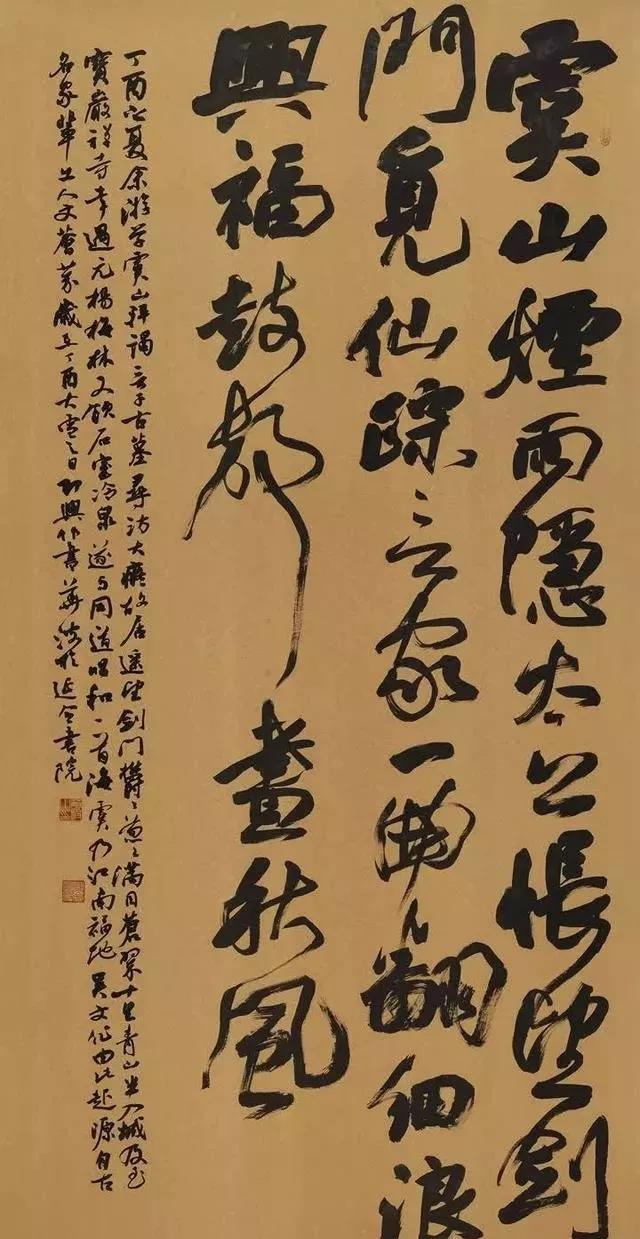 虞山煙雨隱太公悵望劍
門覓仙蹤言家一曲翻細浪
興福鼓都盡秋風
丁酉之夏余游学虞山拜謁言子古墓尋訪大癡故居遠望劍門鬱〻蔥〻滿目蒼翠十里青山半入城及至
寶嚴禅寺幸遇元楊梅林又飲石室冷泉遂与同道唱和一首海虞乃江南福地吳文化由此起源自古
名家輩出人文薈萃歲在丁酉大雪之日即興作書於書院